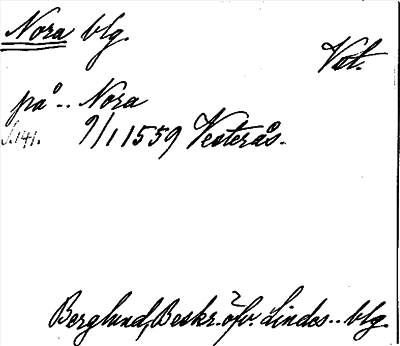 Nora blg.
Vstm.
på .. Nora
s. 141. 9/1 1559 Vesterås.
Berglund, Beskr. öfv. Lindes.. blg.